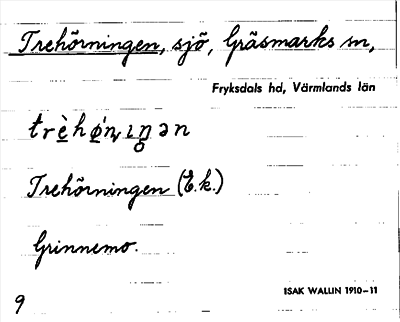 Trehörningen, sjö, Gräsmarks sn,
Fryksdals hd, Värmlands län
Trehörningen (E.k.)
Grinnemo.
ISAK WALLIN 1910–11
9